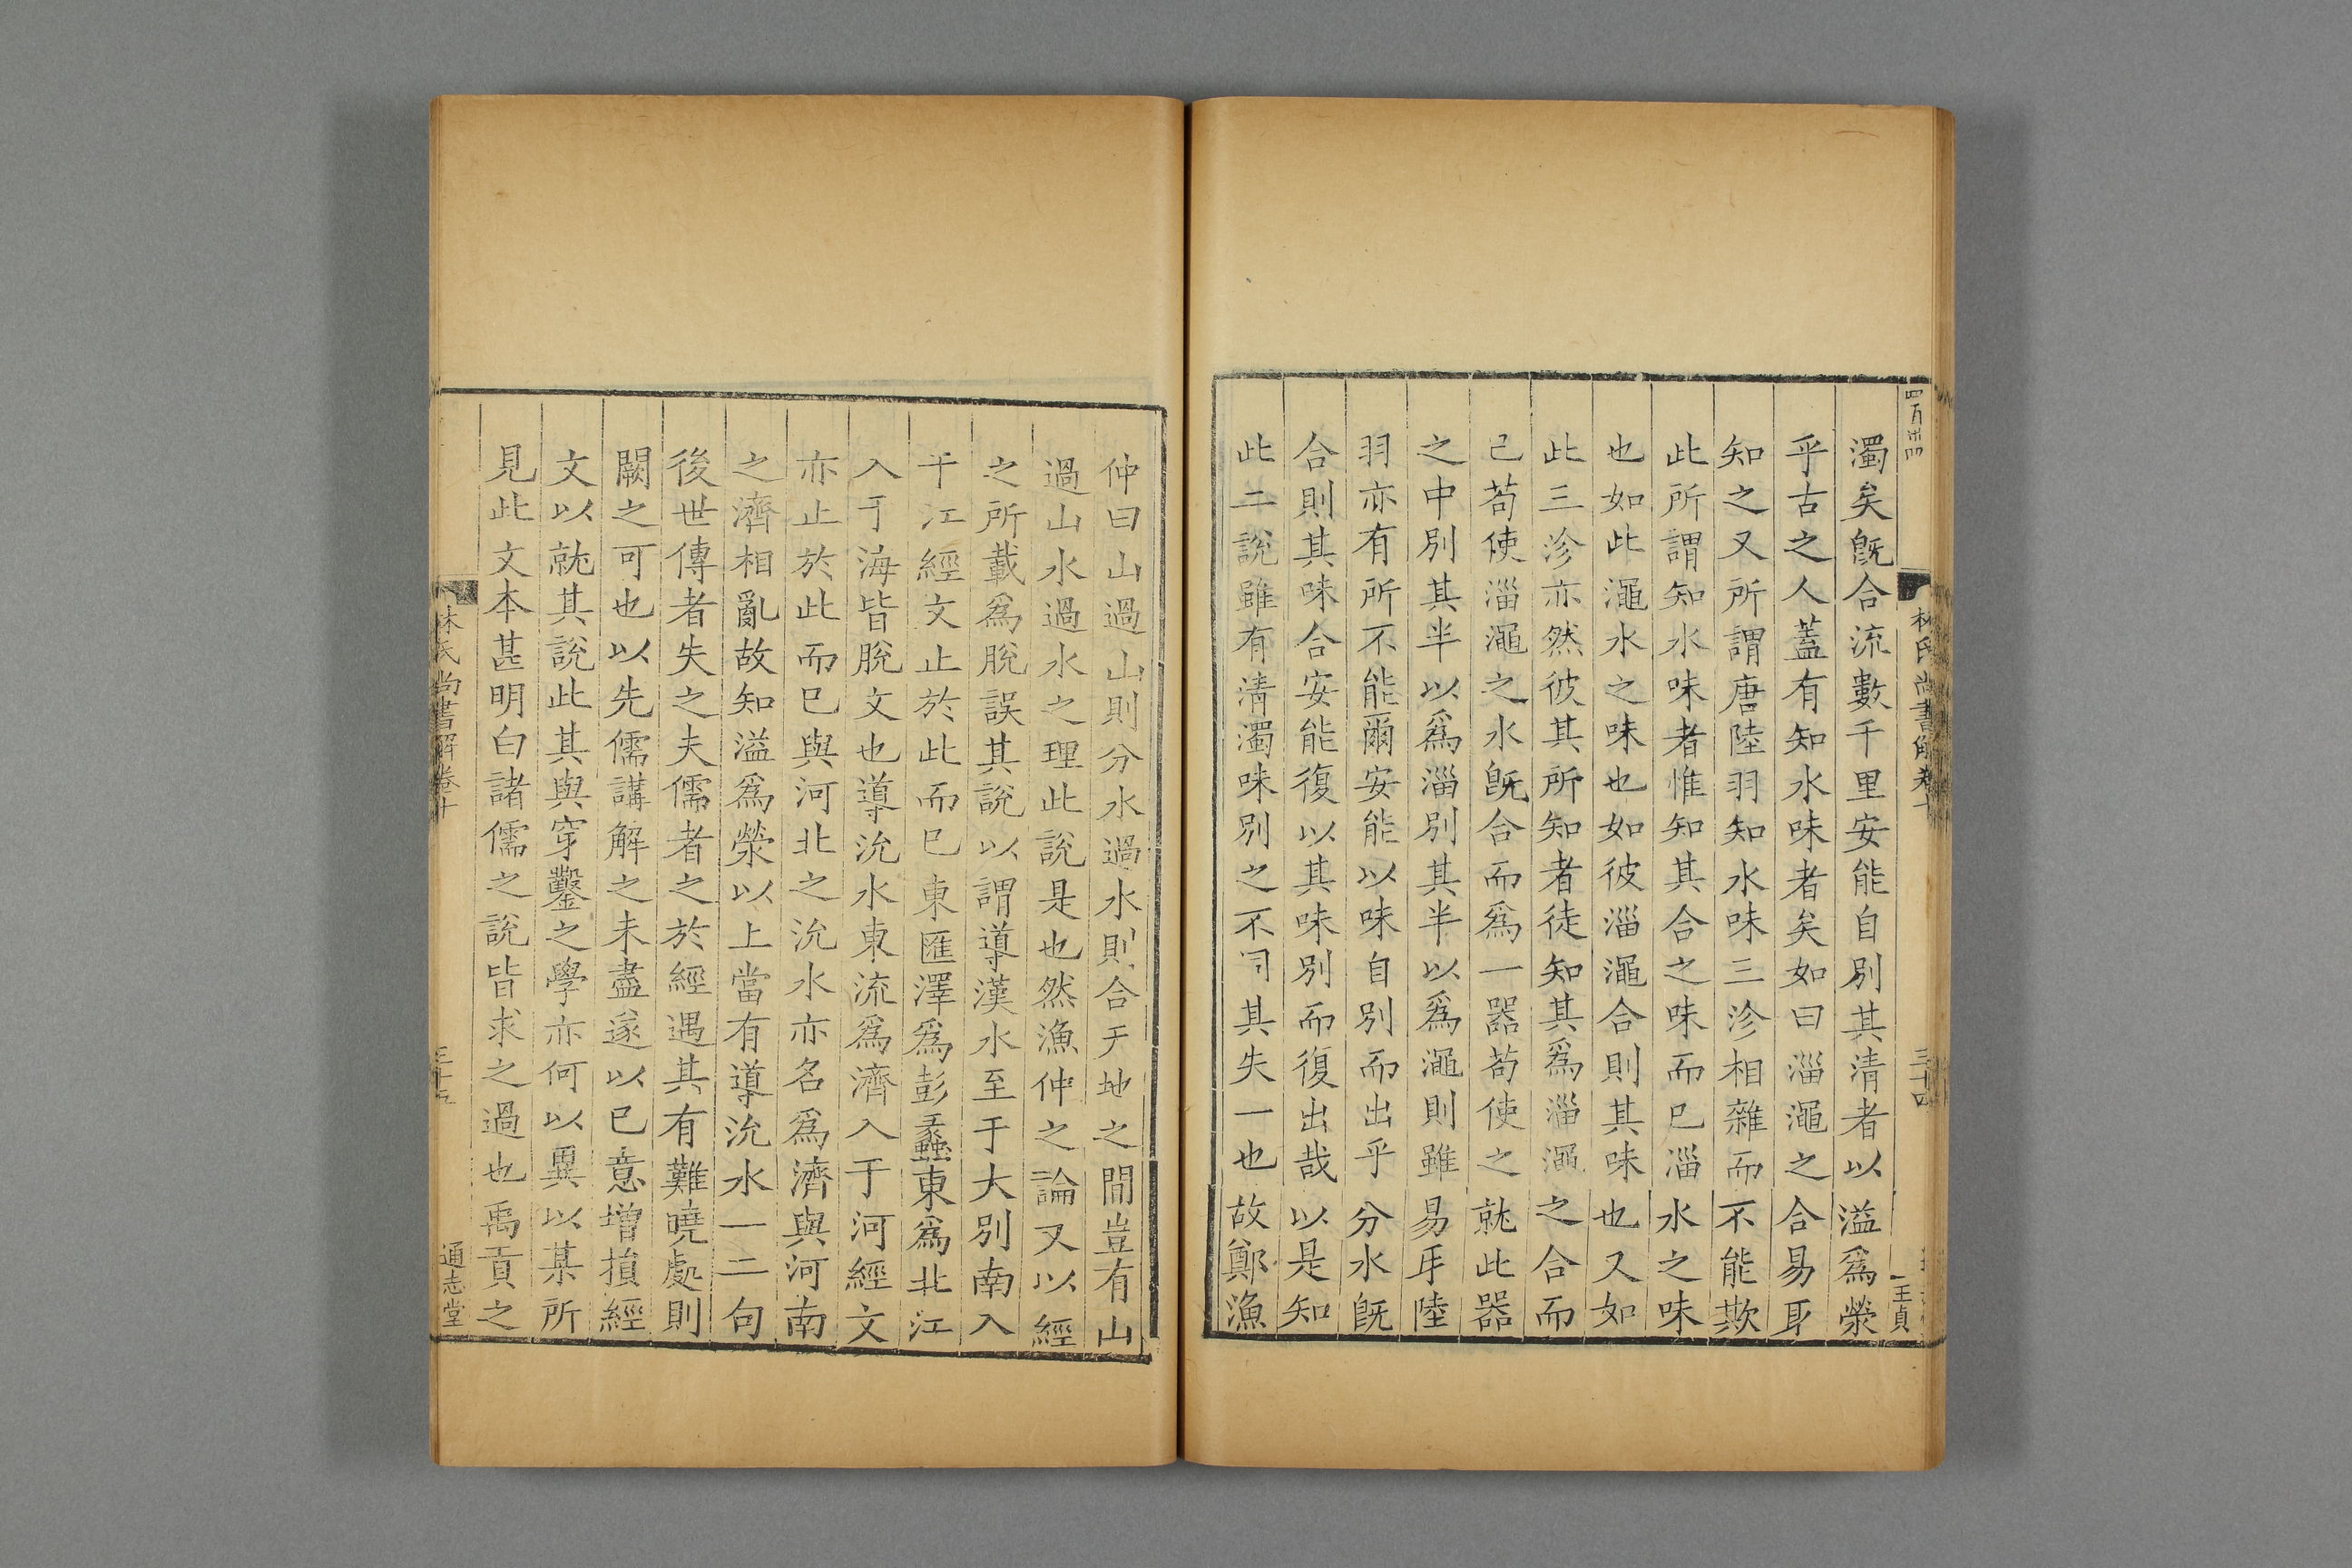 四百
林氏尚書解卷十
三十四
王貞
濁矣旣合流數千里安能自別其清者以溢爲滎
乎古之人蓋有知水味者矣如曰淄澠之合易牙
知之又所謂唐陸羽知水味三沴相雜而不能欺
此所謂知水味者惟知其合之味而已淄水之味
也如此澠水之味也如彼淄澠合則其味也又如
此三沴亦然彼其所知者徒知其爲淄澠之合而
已苟使淄澠之水旣合而爲一器苟使之就此器
之中別其半以爲淄別其半以爲澠則雖易牙陸
羽亦有所不能爾安能以味自別而出乎分水旣
合則其味合安能復以其味別而復出哉以是知
此二說雖有清濁味別之不同其失一也故鄭漁
仲曰山過山則分水過水則合于地之間豈有山
過山水過水之理此說是也然漁仲之論又以經
之所載爲脫誤其說以謂導漢水至于大別南入
于江經文止於此而已東匯澤爲彭蠡東爲北江
入于海皆脫文也導沇水東流爲濟入于河經文
亦止於此而已與河北之沇水亦名爲濟與河南
之濟相亂故知溢爲滎以上當有導沇水一二句
後世傳者失之夫儒者之於經遇其有難曉處則
闕之可也以先儒講解之未盡遂以己意增損經
文以就其說此其與穿鑿之學亦何以異以某所
見此文本甚明白諸儒之說皆求之過也禹貢之
林氏尚書解卷十
三十五
通志堂